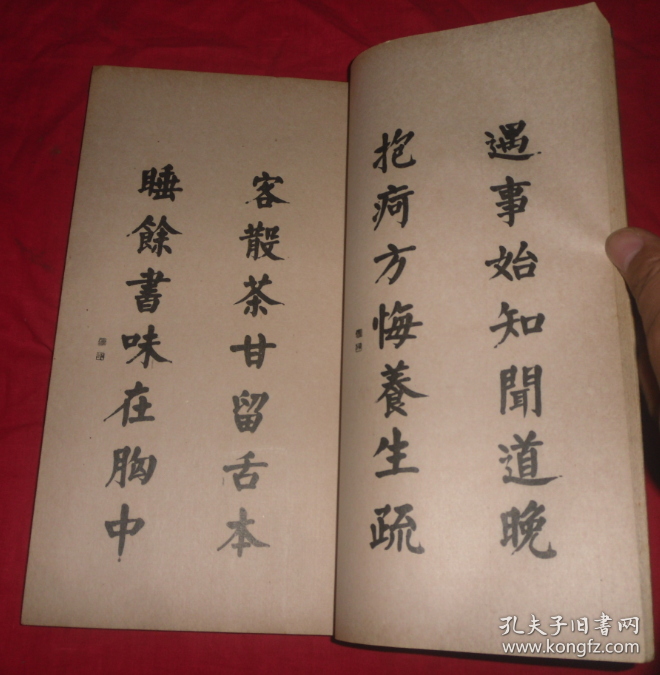 遇事始知聞道晚
抱疴方悔養生疏
客散茶甘留舌本
睡餘書味在胸中
孔夫子旧书网
www.kongfz.com